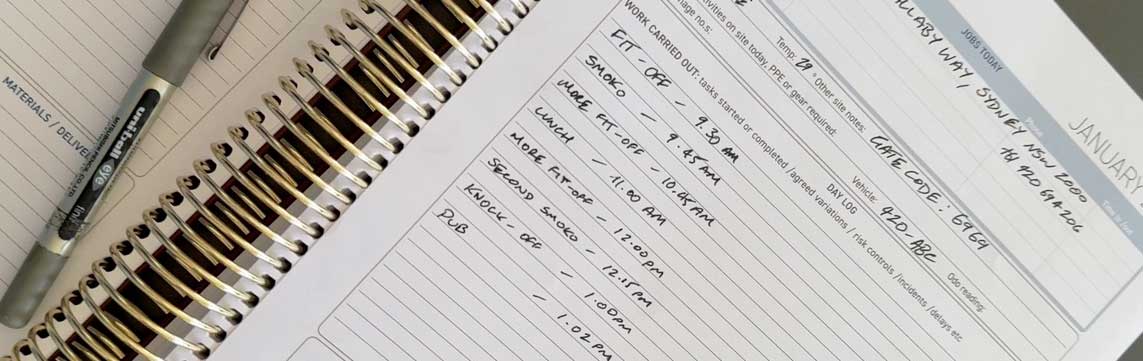 MATERIALS / DELIVE
uni-ball eye
MITSUBISHI PENCIL CO. LTD
fine
JANUARY
JOBS TODAY
Phone
Time in / out
LLABY WAY, SYDNEY NSW 2000
Temp: 29 ° Other site notes: GATE CODE: 6969
ctivities on site today, PPE or gear required:
mage no.s:
Vehicle: 420-ABC Odo reading:
DAY LOG
WORK CARRIED OUT: tasks started or completed / agreed variations / risk controls / incidents / delays etc
FIT-OFF - 9.30 AM
SMOKO - 9.45 AM
MORE FIT-OFF - 10.45 AM
LUNCH - 11.00 AM
MORE FIT-OFF - 12.00 PM
SECOND SMOKO - 12.15 PM
KNOCK-OFF - 1.00PM
PUB - 1.02 PM